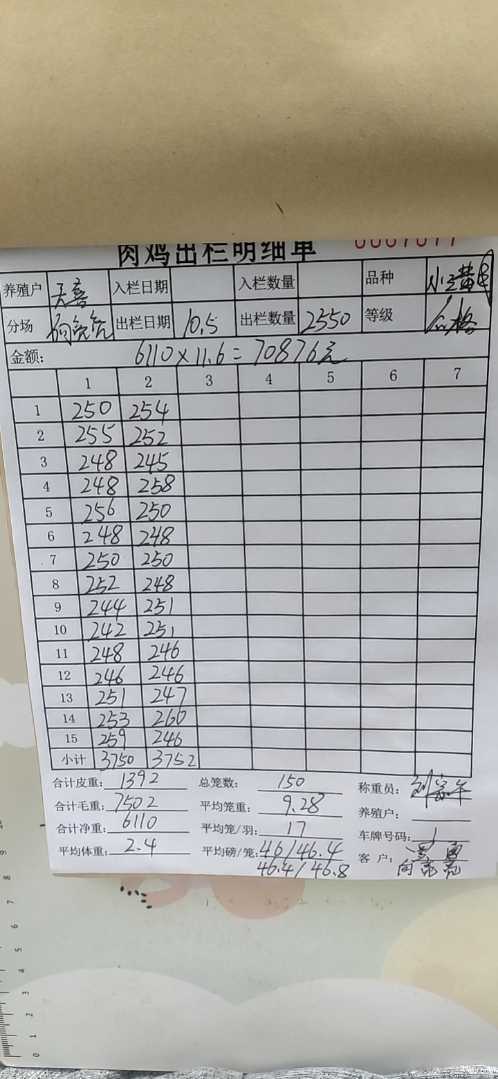 肉鸡出栏明细单
养殖户 天喜 入栏日期 入栏数量 品种
分场 向亮亮 出栏日期 10.5 出栏数量 2550 等级 合格
金额: 6110×11.6=70876元
1 2 3 4 5 6 7
1 250 254
2 255 252
3 248 245
4 248 258
5 256 250
6 248 248
7 250 250
8 252 248
9 244 251
10 242 251
11 248 246
12 246 246
13 251 247
14 253 260
15 259 246
小计 3750 3752
合计皮重: 1392 总笼数: 150 称重员:
合计毛重: 7502 平均笼重: 9.28 养殖户:
合计净重: 6110 平均笼/羽: 17 车牌号码:
平均体重: 2.4 平均磅/笼: 46/46.4 客户:
46.4/46.8 向亮亮